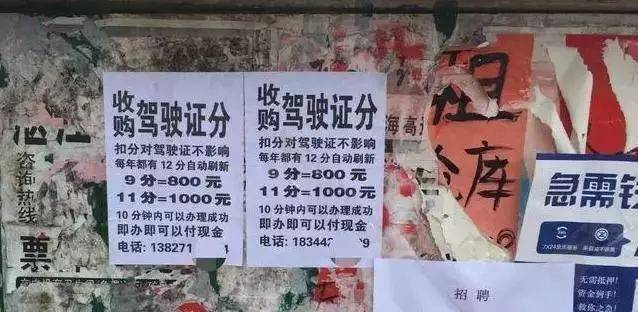 收购 驾驶证分
扣分对驾驶证不影响
每年都有12分自动刷新
9分=800元
11分=1000元
10分钟内可以办理成功
即办即可以付现金
电话: 13827
收购 驾驶证分
扣分对驾驶证不影响
每年都有12分自动刷新
9分=800元
11分=1000元
10分钟内可以办理成功
即办即可以付现金
电话: 18344 9
咨询热线
票
海高
租
库
急需钱
招聘
无需抵押!
资金到手!
救你之急!